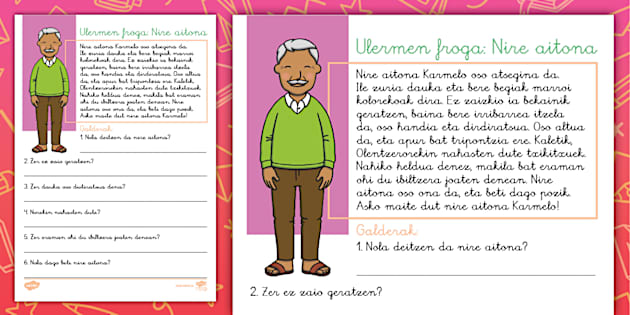 Ulermen froga: Nire aitona
Nire aitona Karmelo oso atsegina da.
Ile zuria dauka eta bere begiak marroi
kolorekoak dira. Ez zaizkio ia bekainik
geratzen, baina bere irribarrea itzela
da, oso handia eta dirdiratsua. Oso altua
da, eta apur bat tripontzia ere. Kaletik,
Olentzerorekin nahasten dute txikitxuek.
Nahiko heldua denez, makila bat eraman
ohi du ibiltzera joaten denean. Nire
aitona oso ona da, eta beti dago pozik.
Asko maite dut nire aitona Karmelo!
Galderak:
1. Nola deitzen da nire aitona?
2. Zer ez zaio geratzen?
3. Zer dauka oso dirdiratsua dena?
4. Norekin nahasten dute?
5. Zer eraman ohi du ibiltzera joaten denean?
6. Nola dago beti nire aitona?
Ulermen froga: Nire aitona
Nire aitona Karmelo oso atsegina da.
Ile zuria dauka eta bere begiak marroi
kolorekoak dira. Ez zaizkio ia bekainik
geratzen, baina bere irribarrea itzela
da, oso handia eta dirdiratsua. Oso altua
da, eta apur bat tripontzia ere. Kaletik,
Olentzerorekin nahasten dute txikitxuek.
Nahiko heldua denez, makila bat eraman
ohi du ibiltzera joaten denean. Nire
aitona oso ona da, eta beti dago pozik.
Asko maite dut nire aitona Karmelo!
Galderak:
1. Nola deitzen da nire aitona?
2. Zer ez zaio geratzen?